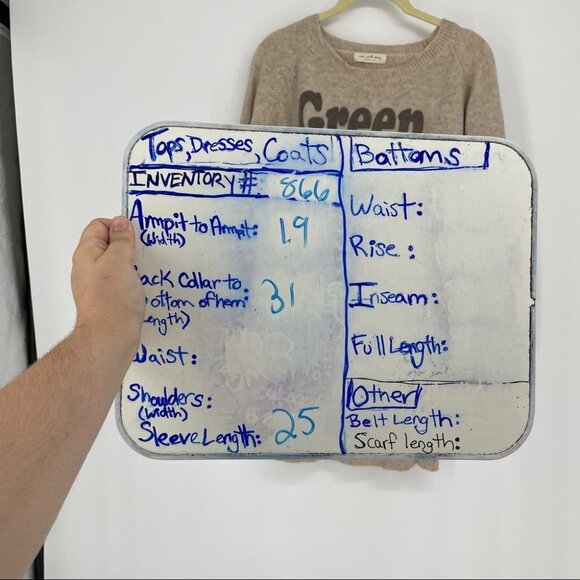 Green
Tops, Dresses, Coats
INVENTORY# 866
Armpit to Armpit: 19
(Width)
Back Collar to
bottom of hem: 31
(Length)
Waist:
Shoulders:
(width)
Sleeve Length: 25
Bottoms
Waist:
Rise:
Inseam:
Full Length:
Other
Belt Length:
Scarf length: